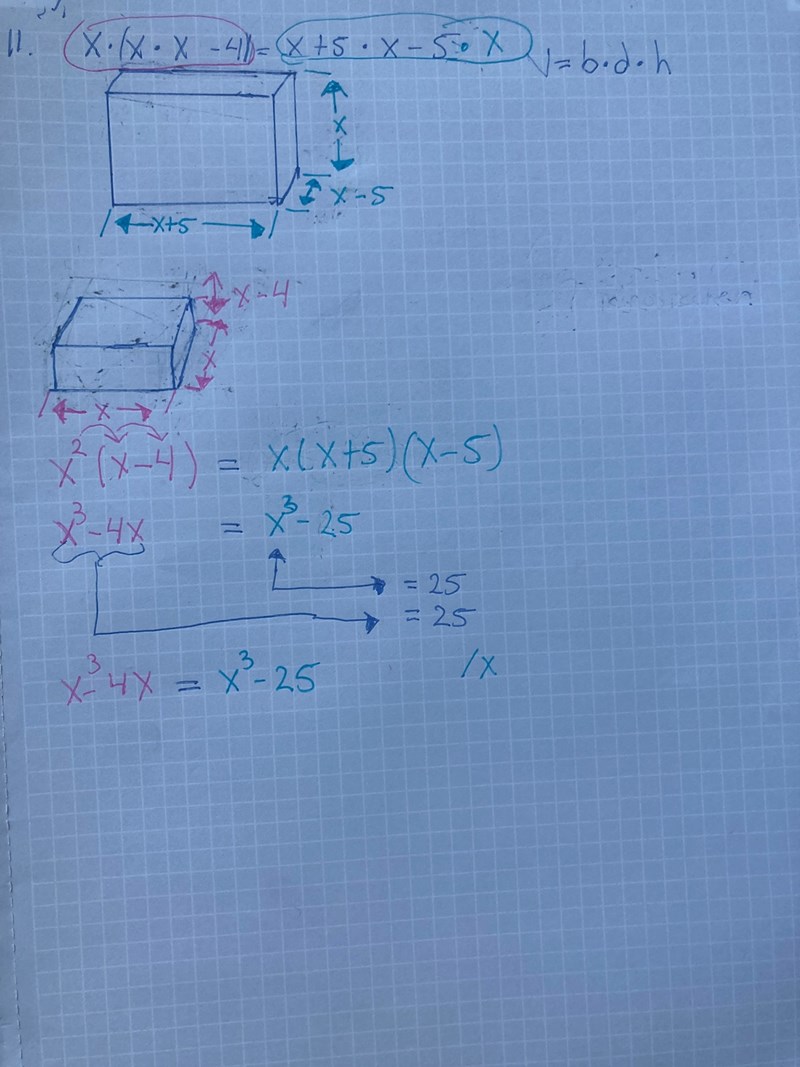 11. x·(x·x -4) = x+5·x-5·x V=b·d·h
x
x-5
x+5
x-4
x
x
x²(x-4) = x(x+5)(x-5)
x³-4x = x³-25
= 25
= 25
x³-4x = x³-25 /x